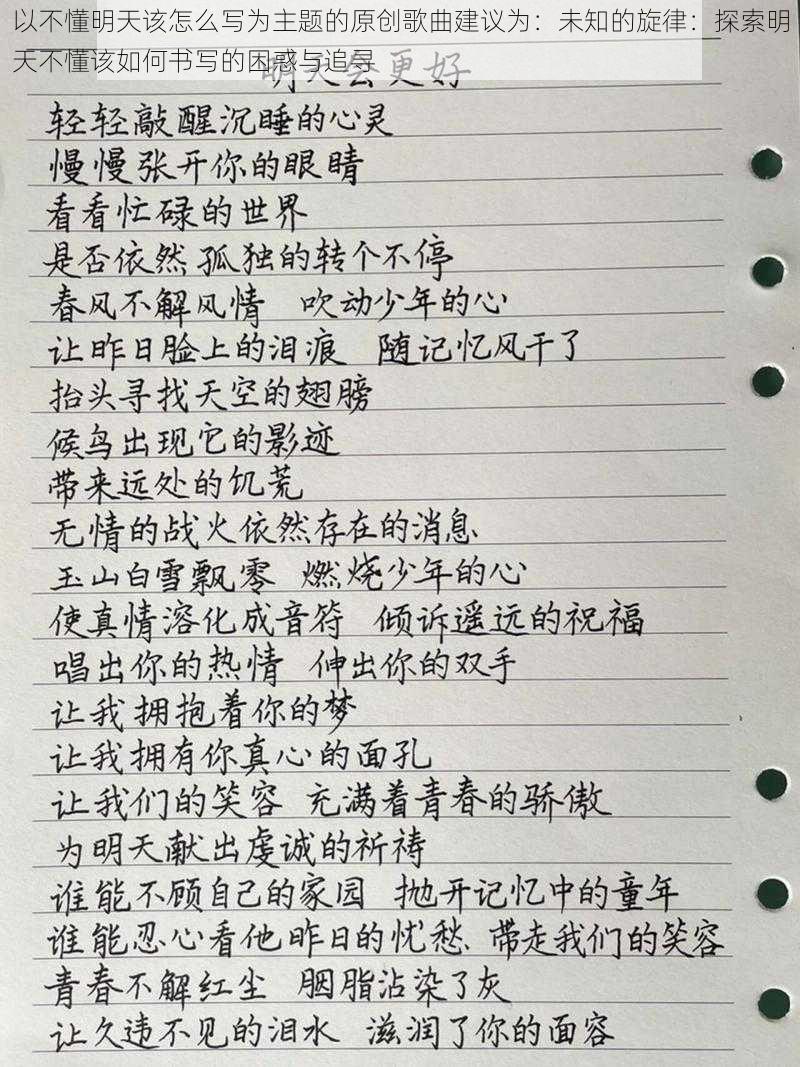 以不懂明天该怎么写为主题的原创歌曲建议为：未知的旋律：探索明
天不懂该如何书写的困惑与追寻
明天会更好
轻轻敲醒沉睡的心灵
慢慢张开你的眼睛
看看忙碌的世界
是否依然孤独的转个不停
春风不解风情 吹动少年的心
让昨日脸上的泪痕 随记忆风干了
抬头寻找天空的翅膀
候鸟出现它的影迹
带来远处的饥荒
无情的战火依然存在的消息
玉山白雪飘零 燃烧少年的心
使真情溶化成音符 倾诉遥远的祝福
唱出你的热情 伸出你的双手
让我拥抱着你的梦
让我拥有你真心的面孔
让我们的笑容 充满着青春的骄傲
为明天献出虔诚的祈祷
谁能不顾自己的家园 抛开记忆中的童年
谁能忍心看他昨日的忧愁、带走我们的笑容
青春不解红尘 胭脂沾染了灰
让久违不见的泪水 滋润了你的面容